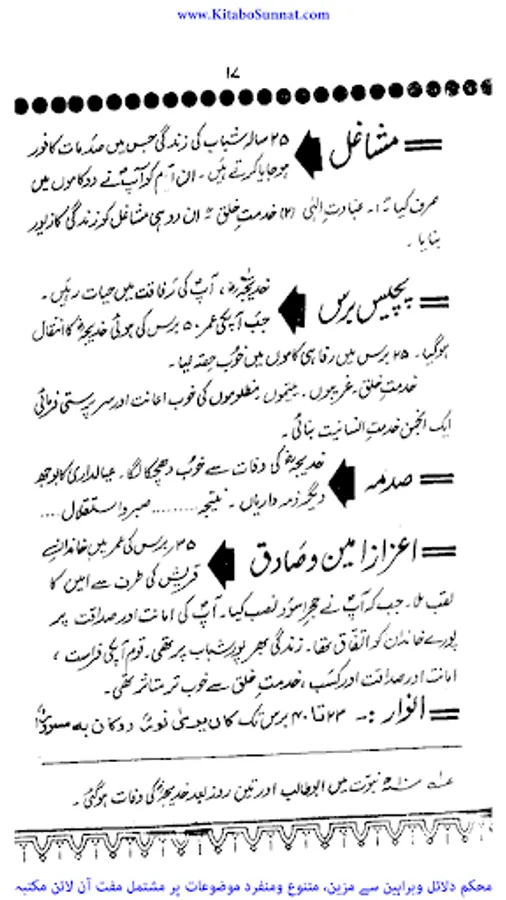 www.KitaboSunnat.com
۱۷
مشاغل ۲۵ سالہ شباب کی زندگی جس میں صدمات کافور
ہو جایا کرتے ہیں۔ ان ایام کو آپؐ نے دو کاموں میں
صرف کیا ۱۔ عبادتِ الٰہی (۲) خدمتِ خلق ان دو ہی مشاغل کو زندگی کا زیور
بنایا۔
پچیس برس خدیجہؓ، آپؐ کی رفاقت میں حیات رہیں۔
جب آپؐ کی عمر ۵۰ برس کی ہوئی خدیجہؓ کا انتقال
ہوگیا۔ ۲۵ برس میں رفاہی کاموں میں خوب حصہ لیا۔
خدمتِ خلق۔ غریبوں، یتیموں مظلوموں کی خوب اعانت اور سرپرستی فرمائی
ایک انجمن خدمتِ انسانیت بنائی۔
صدمہ خدیجہؓ کی وفات سے خوب دھچکا لگا۔ عیالداری کا بوجھ
دیگر ذمہ داریاں۔ نتیجہ ........ صبر و استقلال ....
اعزاز امین و صادق ۳۵ برس کی عمر میں خاندانِ
قریش کی طرف سے امین کا
لقب ملا۔ جب کہ آپؐ نے حجرِ اسود نصب کیا۔ آپؐ کی امانت اور صداقت پر
پورے خاندان کو اتفاق تھا۔ زندگی بھر پور شباب پر تھی۔ قوم آپؐ کی فراست،
امانت اور صداقت اور کسب، خدمتِ خلق سے خوب تر متاثر تھی۔
انوار :۔ ۲۳ تا ۴۰ برس تک
نبوت میں ابو طالب اور تین روز بعد خدیجہؓ کی وفات ہوگئی۔
محکم دلائل وبراہین سے مزین، متنوع ومنفرد موضوعات پر مشتمل مفت آن لائن مکتبہ